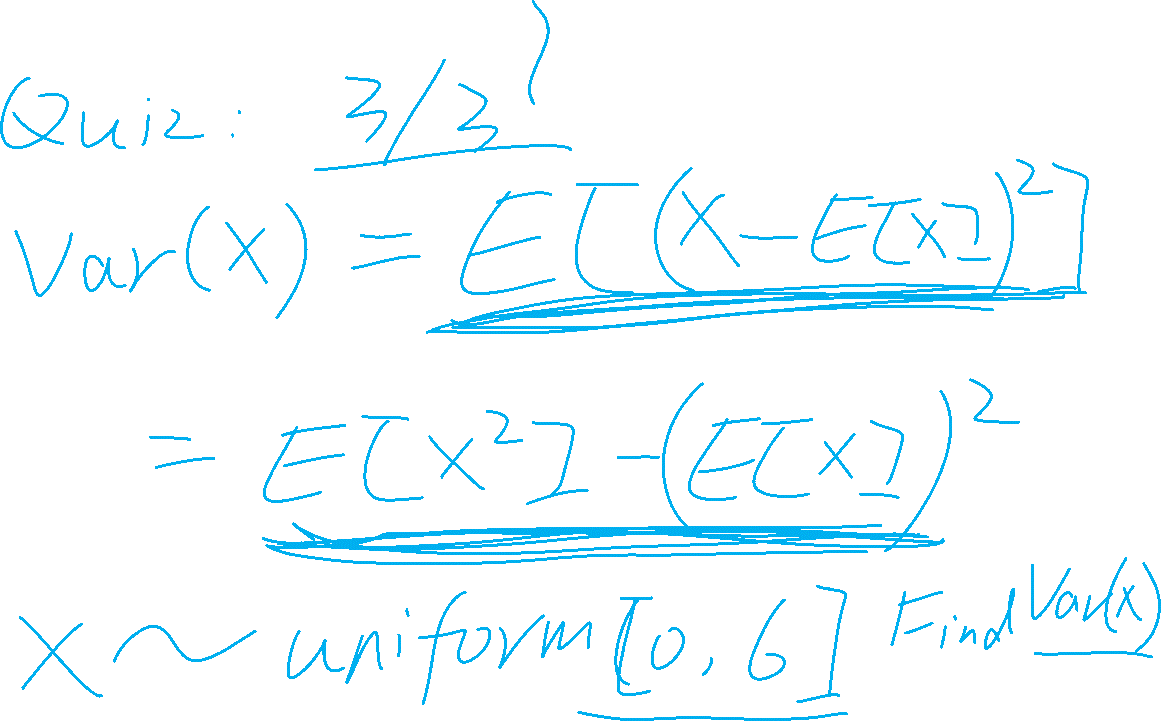 Quiz: 3/3
Var(X) = E[(X-E[X])²]
= E[X²] -(E[X])²
X ~ uniform[0, 6] Find Var(X)